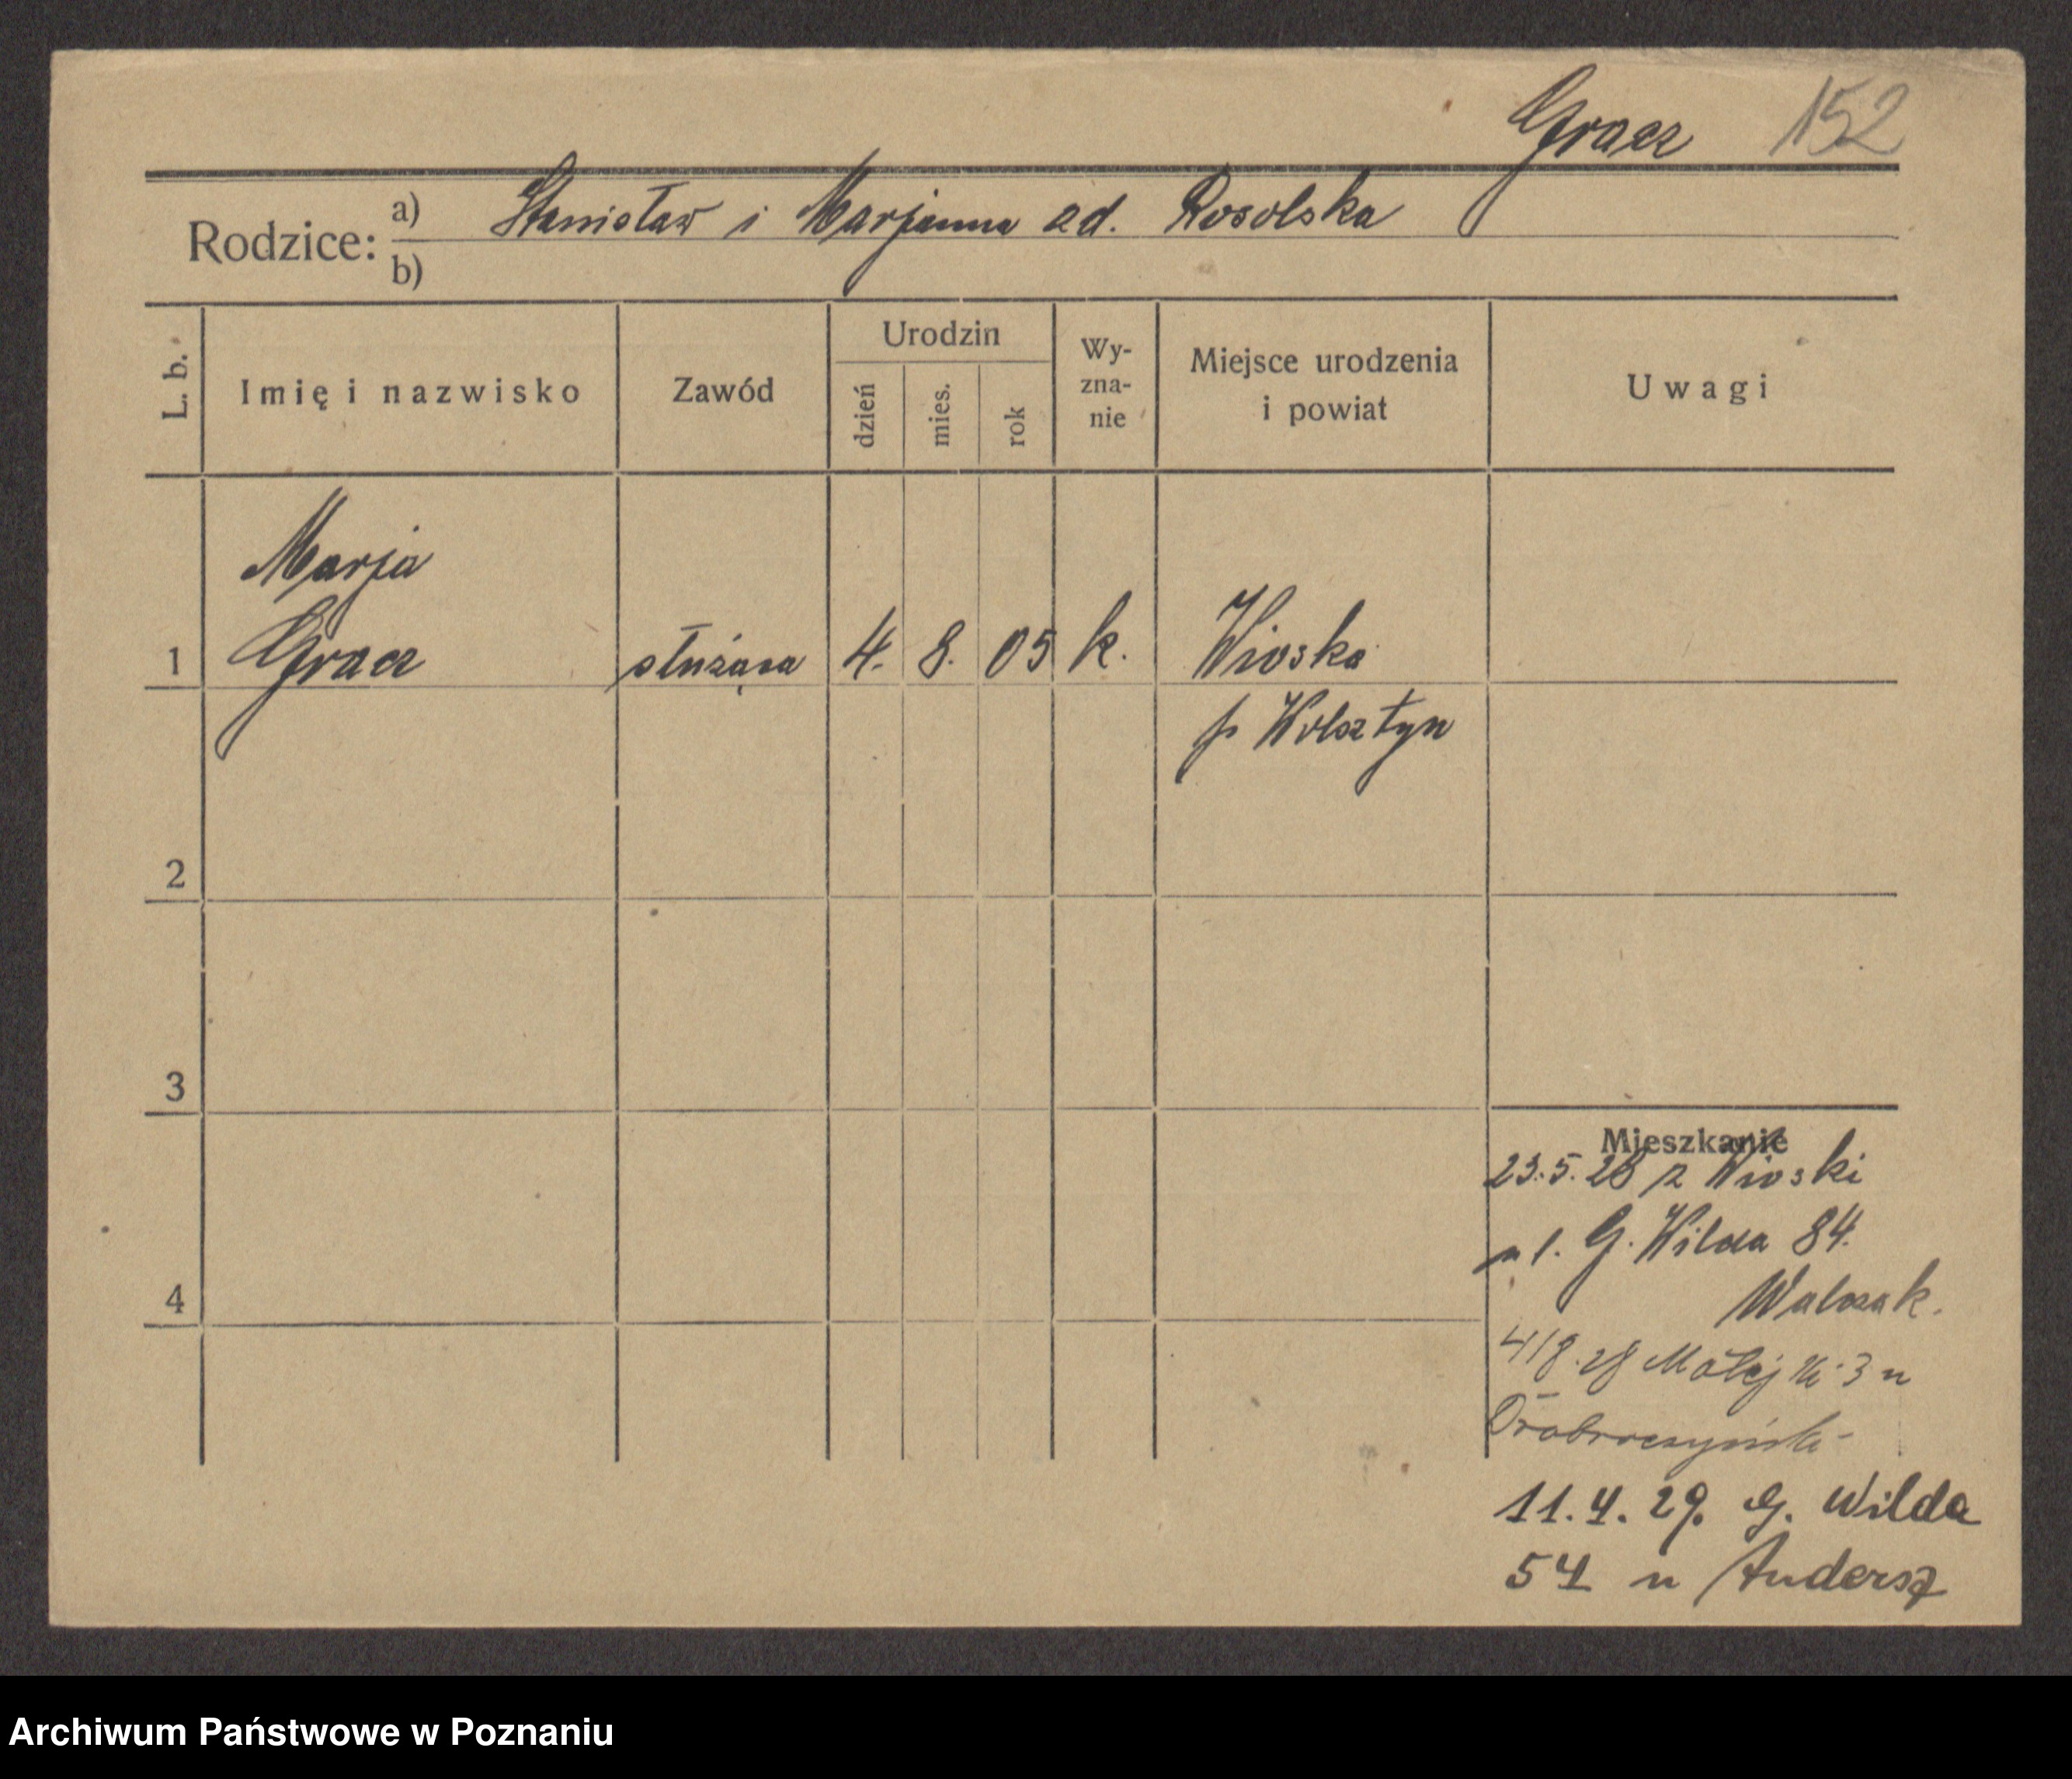 Gracz 152
Rodzice: a) Stanisław i Marjanna zd. Rosolska
b)
L. b. Imię i nazwisko Zawód Urodzin dzień mies. rok Wy-zna-nie Miejsce urodzenia i powiat Uwagi
Marja
1 Gracz służąca 4. 8. 05 k. Wioska
p Wolsztyn
2
3
Mieszkanie
23.5.28 z Wioski
G. Wilda 84.
4 Walczak.
4/8.28 Matejki 3 u
11.4.29. G. Wilda
54 u Andersz
Archiwum Państwowe w Poznaniu